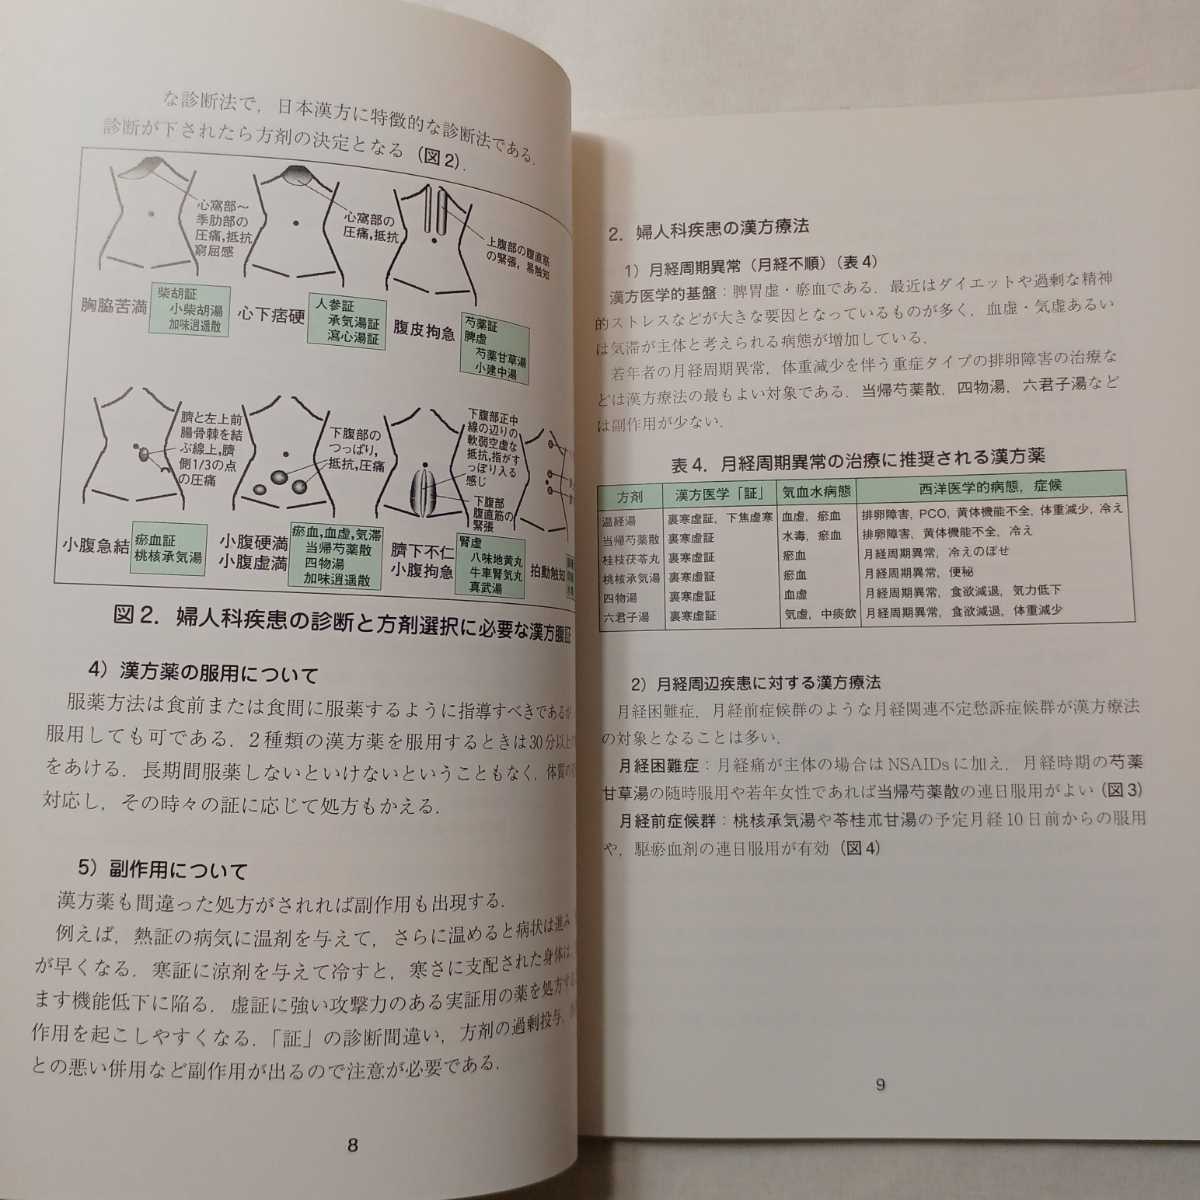 な診断法で，日本漢方に特徴的な診断法である．
診断が下されたら方剤の決定となる（図2）．
心窩部～
季肋部の
圧痛,抵抗
窮屈感
胸脇苦満
柴胡証
小柴胡湯
加味逍遥散
心窩部の
圧痛,抵抗
心下痞硬
人参証
承気湯証
瀉心湯証
上腹部の腹直筋
の緊張，易触知
腹皮拘急
芍薬証
脾虚
芍薬甘草湯
小建中湯
臍と左上前
腸骨棘を結
ぶ線上，臍
側1/3の点
の圧痛
小腹急結
瘀血証
桃核承気湯
下腹部の
つっぱり，
抵抗，圧痛
小腹硬満
小腹虚満
瘀血,血虚,気滞
当帰芍薬散
四物湯
加味逍遥散
下腹部正中
線の辺りの
軟弱空虚な
抵抗,指がす
っぽり入る
感じ
下腹部
腹直筋の
緊張
臍下不仁
小腹拘急
腎虚
八味地黄丸
牛車腎気丸
真武湯
拍動触知
図2．婦人科疾患の診断と方剤選択に必要な漢方腹証
4）漢方薬の服用について
服薬方法は食前または食間に服薬するように指導すべきであるが
服用しても可である．2種類の漢方薬を服用するときは30分以上の
をあける．長期間服薬しないといけないということもなく，体質の
対応し，その時々の証に応じて処方もかえる．
5）副作用について
漢方薬も間違った処方がされれば副作用も出現する．
例えば，熱証の病気に温剤を与えて，さらに温めると病状は進み
が早くなる．寒証に涼剤を与えて冷すと，寒さに支配された身体は，
ます機能低下に陥る．虚証に強い攻撃力のある実証用の薬を処方する
作用を起こしやすくなる．「証」の診断間違い，方剤の過剰投与，
との悪い併用など副作用が出るので注意が必要である．
8
2．婦人科疾患の漢方療法
1）月経周期異常（月経不順）（表4）
漢方医学的基盤：脾胃虚・瘀血である．最近はダイエットや過剰な精神
的ストレスなどが大きな要因となっているものが多く，血虚・気虚あるい
は気滞が主体と考えられる病態が増加している．
若年者の月経周期異常，体重減少を伴う重症タイプの排卵障害の治療な
どは漢方療法の最もよい対象である．当帰芍薬散，四物湯，六君子湯など
は副作用が少ない．
表4．月経周期異常の治療に推奨される漢方薬
方剤 漢方医学「証」 気血水病態 西洋医学的病態，症候
温経湯 裏寒虚証，下焦虚寒 血虚，瘀血 排卵障害，PCO，黄体機能不全，体重減少，冷え
当帰芍薬散 裏寒虚証 水毒，瘀血 排卵障害，黄体機能不全，冷え
桂枝茯苓丸 裏寒虚証 瘀血 月経周期異常，冷えのぼせ
桃核承気湯 裏寒虚証 瘀血 月経周期異常，便秘
四物湯 裏寒虚証 血虚 月経周期異常，食欲減退，気力低下
六君子湯 裏寒虚証 気虚，中痰飲 月経周期異常，食欲減退，体重減少
2）月経周辺疾患に対する漢方療法
月経困難症，月経前症候群のような月経関連不定愁訴症候群が漢方療法
の対象となることは多い．
月経困難症：月経痛が主体の場合はNSAIDsに加え，月経時期の芍薬
甘草湯の随時服用や若年女性であれば当帰芍薬散の連日服用がよい（図3）
月経前症候群：桃核承気湯や苓桂朮甘湯の予定月経10日前からの服用
や，駆瘀血剤の連日服用が有効（図4）
9